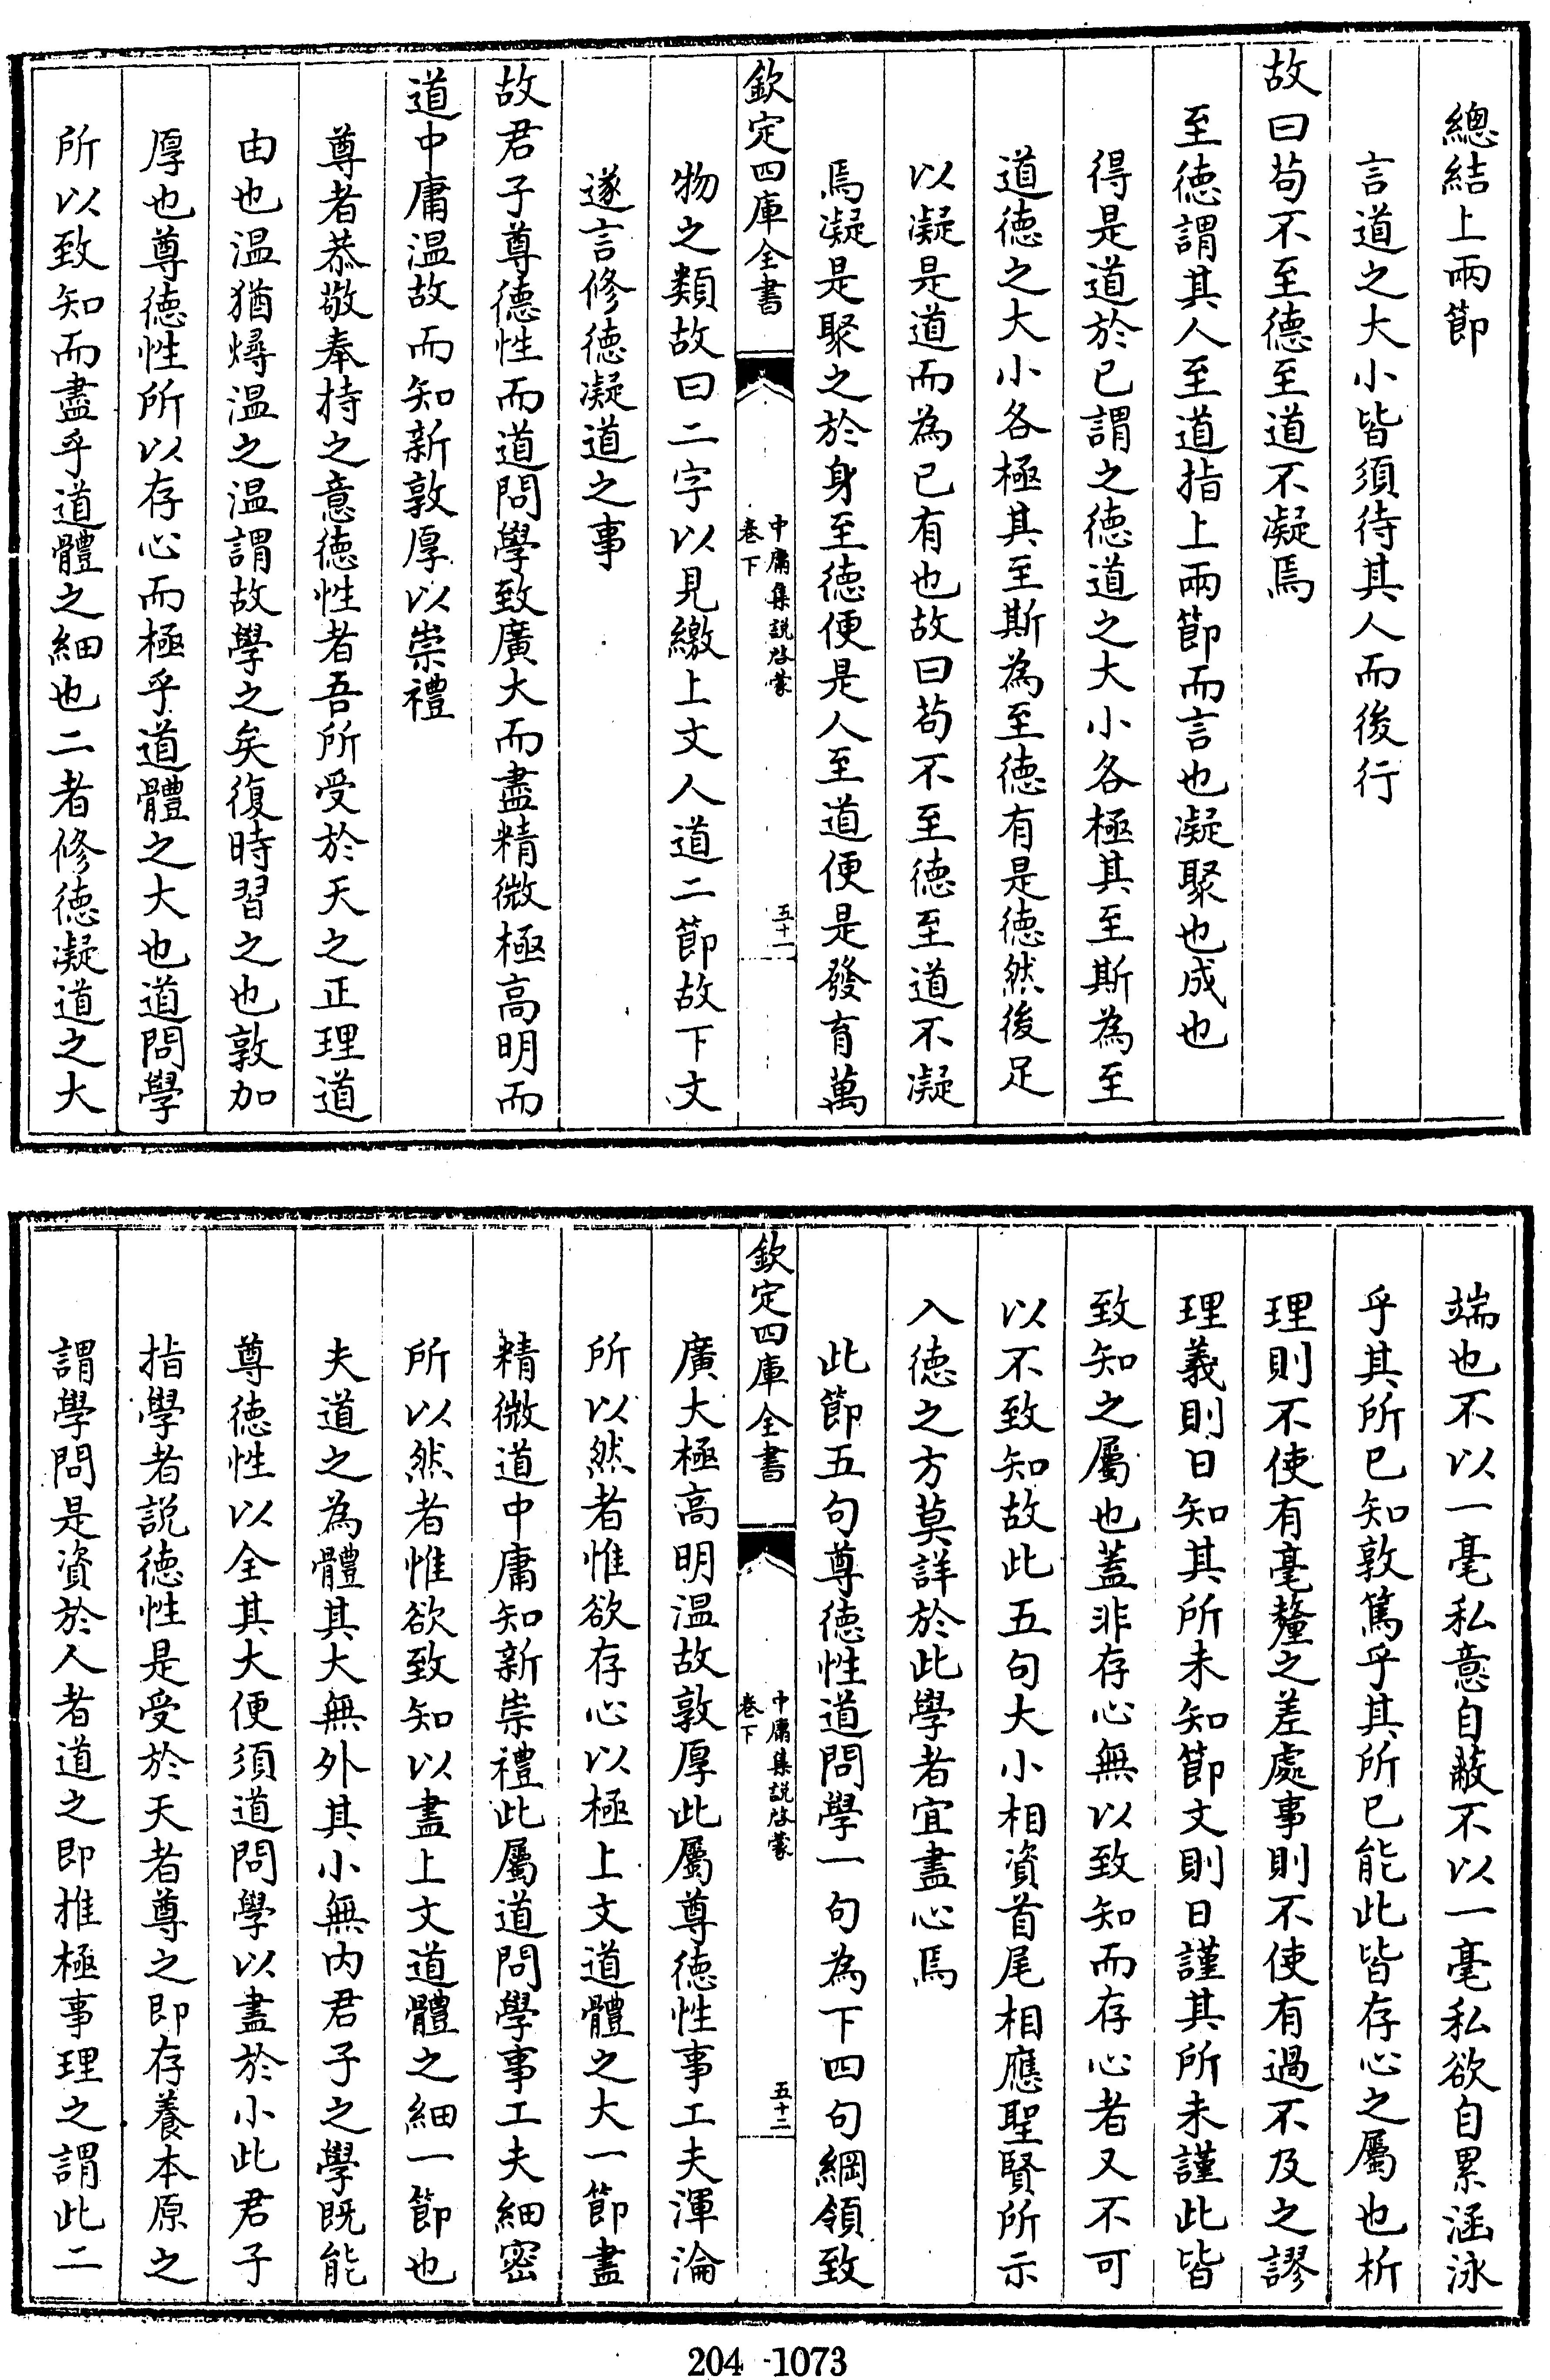 總結上兩節
言道之大小皆須待其人而後行
故曰苟不至德至道不凝焉
至德謂其人至道指上兩節而言也凝聚也成也
得是道於已謂之德道之大小各極其至斯為至
道德之大小各極其至斯為至德有是德然後足
以凝是道而為已有也故曰苟不至德至道不凝
焉凝是聚之於身至德便是人至道便是發育萬
欽定四庫全書
中庸集說啓蒙
卷下
五十一
物之類故曰二字以見繳上文人道二節故下文
遂言修德凝道之事
故君子尊德性而道問學致廣大而盡精微極高明而
道中庸温故而知新敦厚以崇禮
尊者恭敬奉持之意德性者吾所受於天之正理道
由也温猶燖温之温謂故學之矣復時習之也敦加
厚也尊德性所以存心而極乎道體之大也道問學
所以致知而盡乎道體之細也二者修德凝道之大
端也不以一毫私意自蔽不以一毫私欲自累涵泳
乎其所已知敦篤乎其所已能此皆存心之屬也析
理則不使有毫釐之差處事則不使有過不及之謬
理義則日知其所未知節文則日謹其所未謹此皆
致知之屬也蓋非存心無以致知而存心者又不可
以不致知故此五句大小相資首尾相應聖賢所示
入德之方莫詳於此學者宜盡心焉
此節五句尊德性道問學一句為下四句綱領致
欽定四庫全書
中庸集說啓蒙
卷下
五十二
廣大極高明温故敦厚此屬尊德性事工夫渾淪
所以然者惟欲存心以極上文道體之大一節盡
精微道中庸知新崇禮此屬道問學事工夫細密
所以然者惟欲致知以盡上文道體之細一節也
夫道之為體其大無外其小無内君子之學既能
尊德性以全其大便須道問學以盡於小此君子
指學者説德性是受於天者尊之即存養本原之
謂學問是資於人者道之即推極事理之謂此二
204-1073